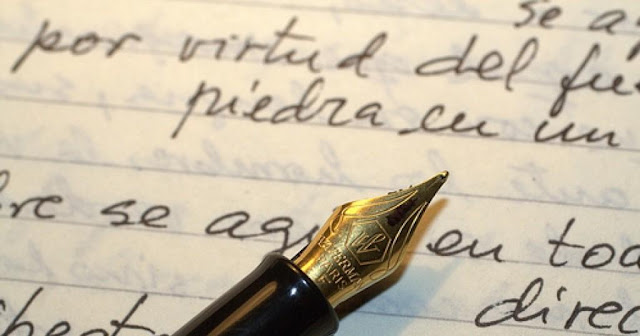 se a
por virtud del fu
piedra en un
bre se ag en tod
direc
WATERMAN
PARIS